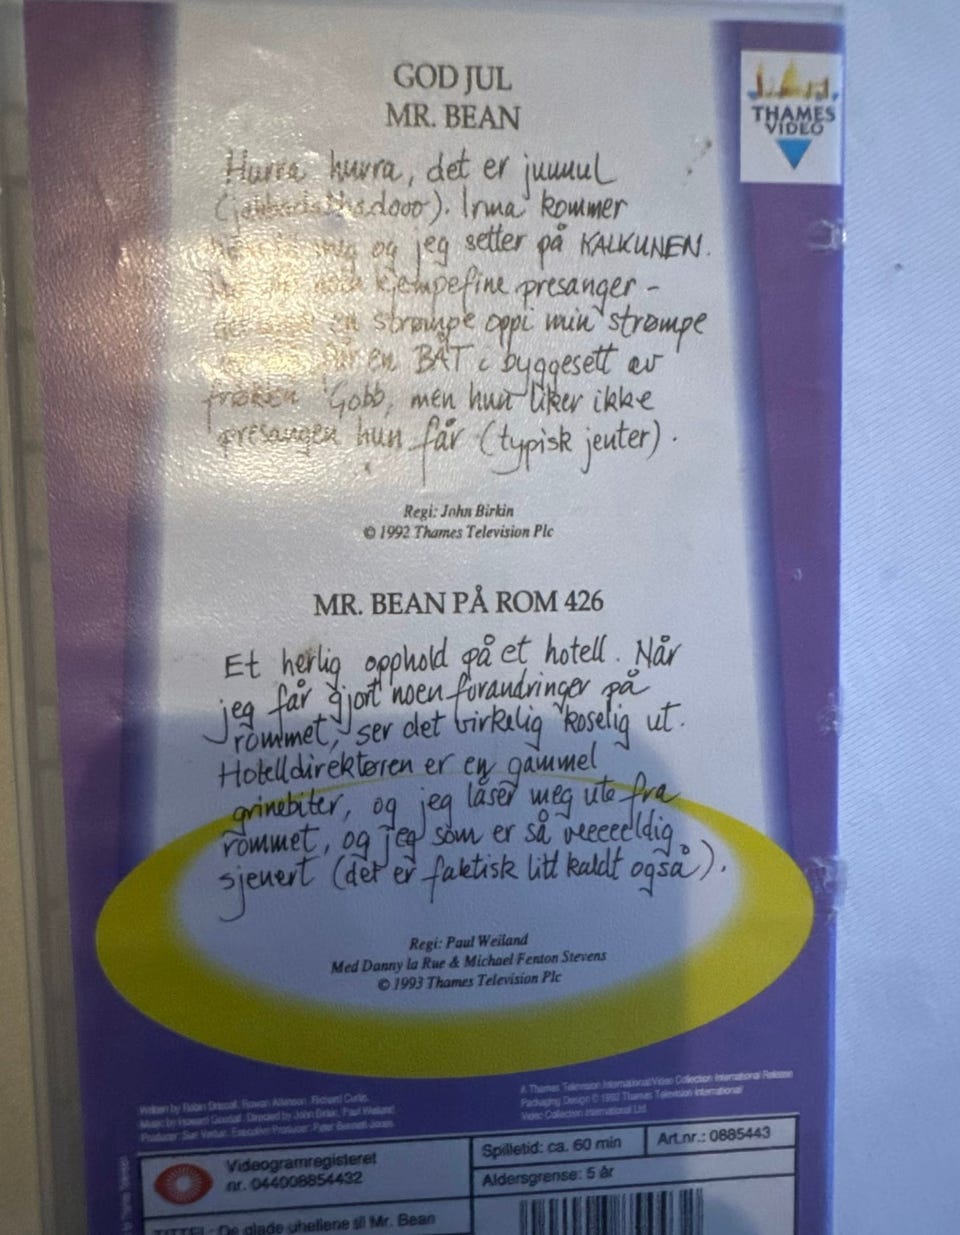 GOD JUL
MR. BEAN
THAMES
VIDEO
Hurra hurra, det er juuuul
Irma kommer
og jeg setter på KALKUNEN.
kjempefine presanger -
en strømpe oppi min strømpe
en BÅT i byggesett av
frøken Gobb, men hun liker ikke
presangen hun får (typisk jenter).
Regi: John Birkin
© 1992 Thames Television Plc
MR. BEAN PÅ ROM 426
Et herlig opphold på et hotell. Når
jeg får gjort noen forandringer på
rommet, ser det virkelig koselig ut.
Hotelldirektøren er en gammel
grinebiter, og jeg låser meg ute fra
rommet, og jeg som er så veeeeldig
sjenert (det er faktisk litt kaldt også).
Regi: Paul Weiland
Med Danny la Rue & Michael Fenton Stevens
© 1993 Thames Television Plc
Written by Robin Driscoll, Rowan Atkinson, Richard Curtis.
Music by Howard Goodall. Directed by John Birkin, Paul Weiland
Producer: Sue Vertue. Executive Producer: Peter Bennett-Jones.
A Thames Television International/Video Collection International Release
Packaging Design © 1992 Thames Television International
Video Collection International Ltd.
Videogramregisteret
nr. 044008854432
Spilletid: ca. 60 min
Art.nr.: 0885443
Aldersgrense: 5 år
TITTEL: De glade uhellene til Mr. Bean